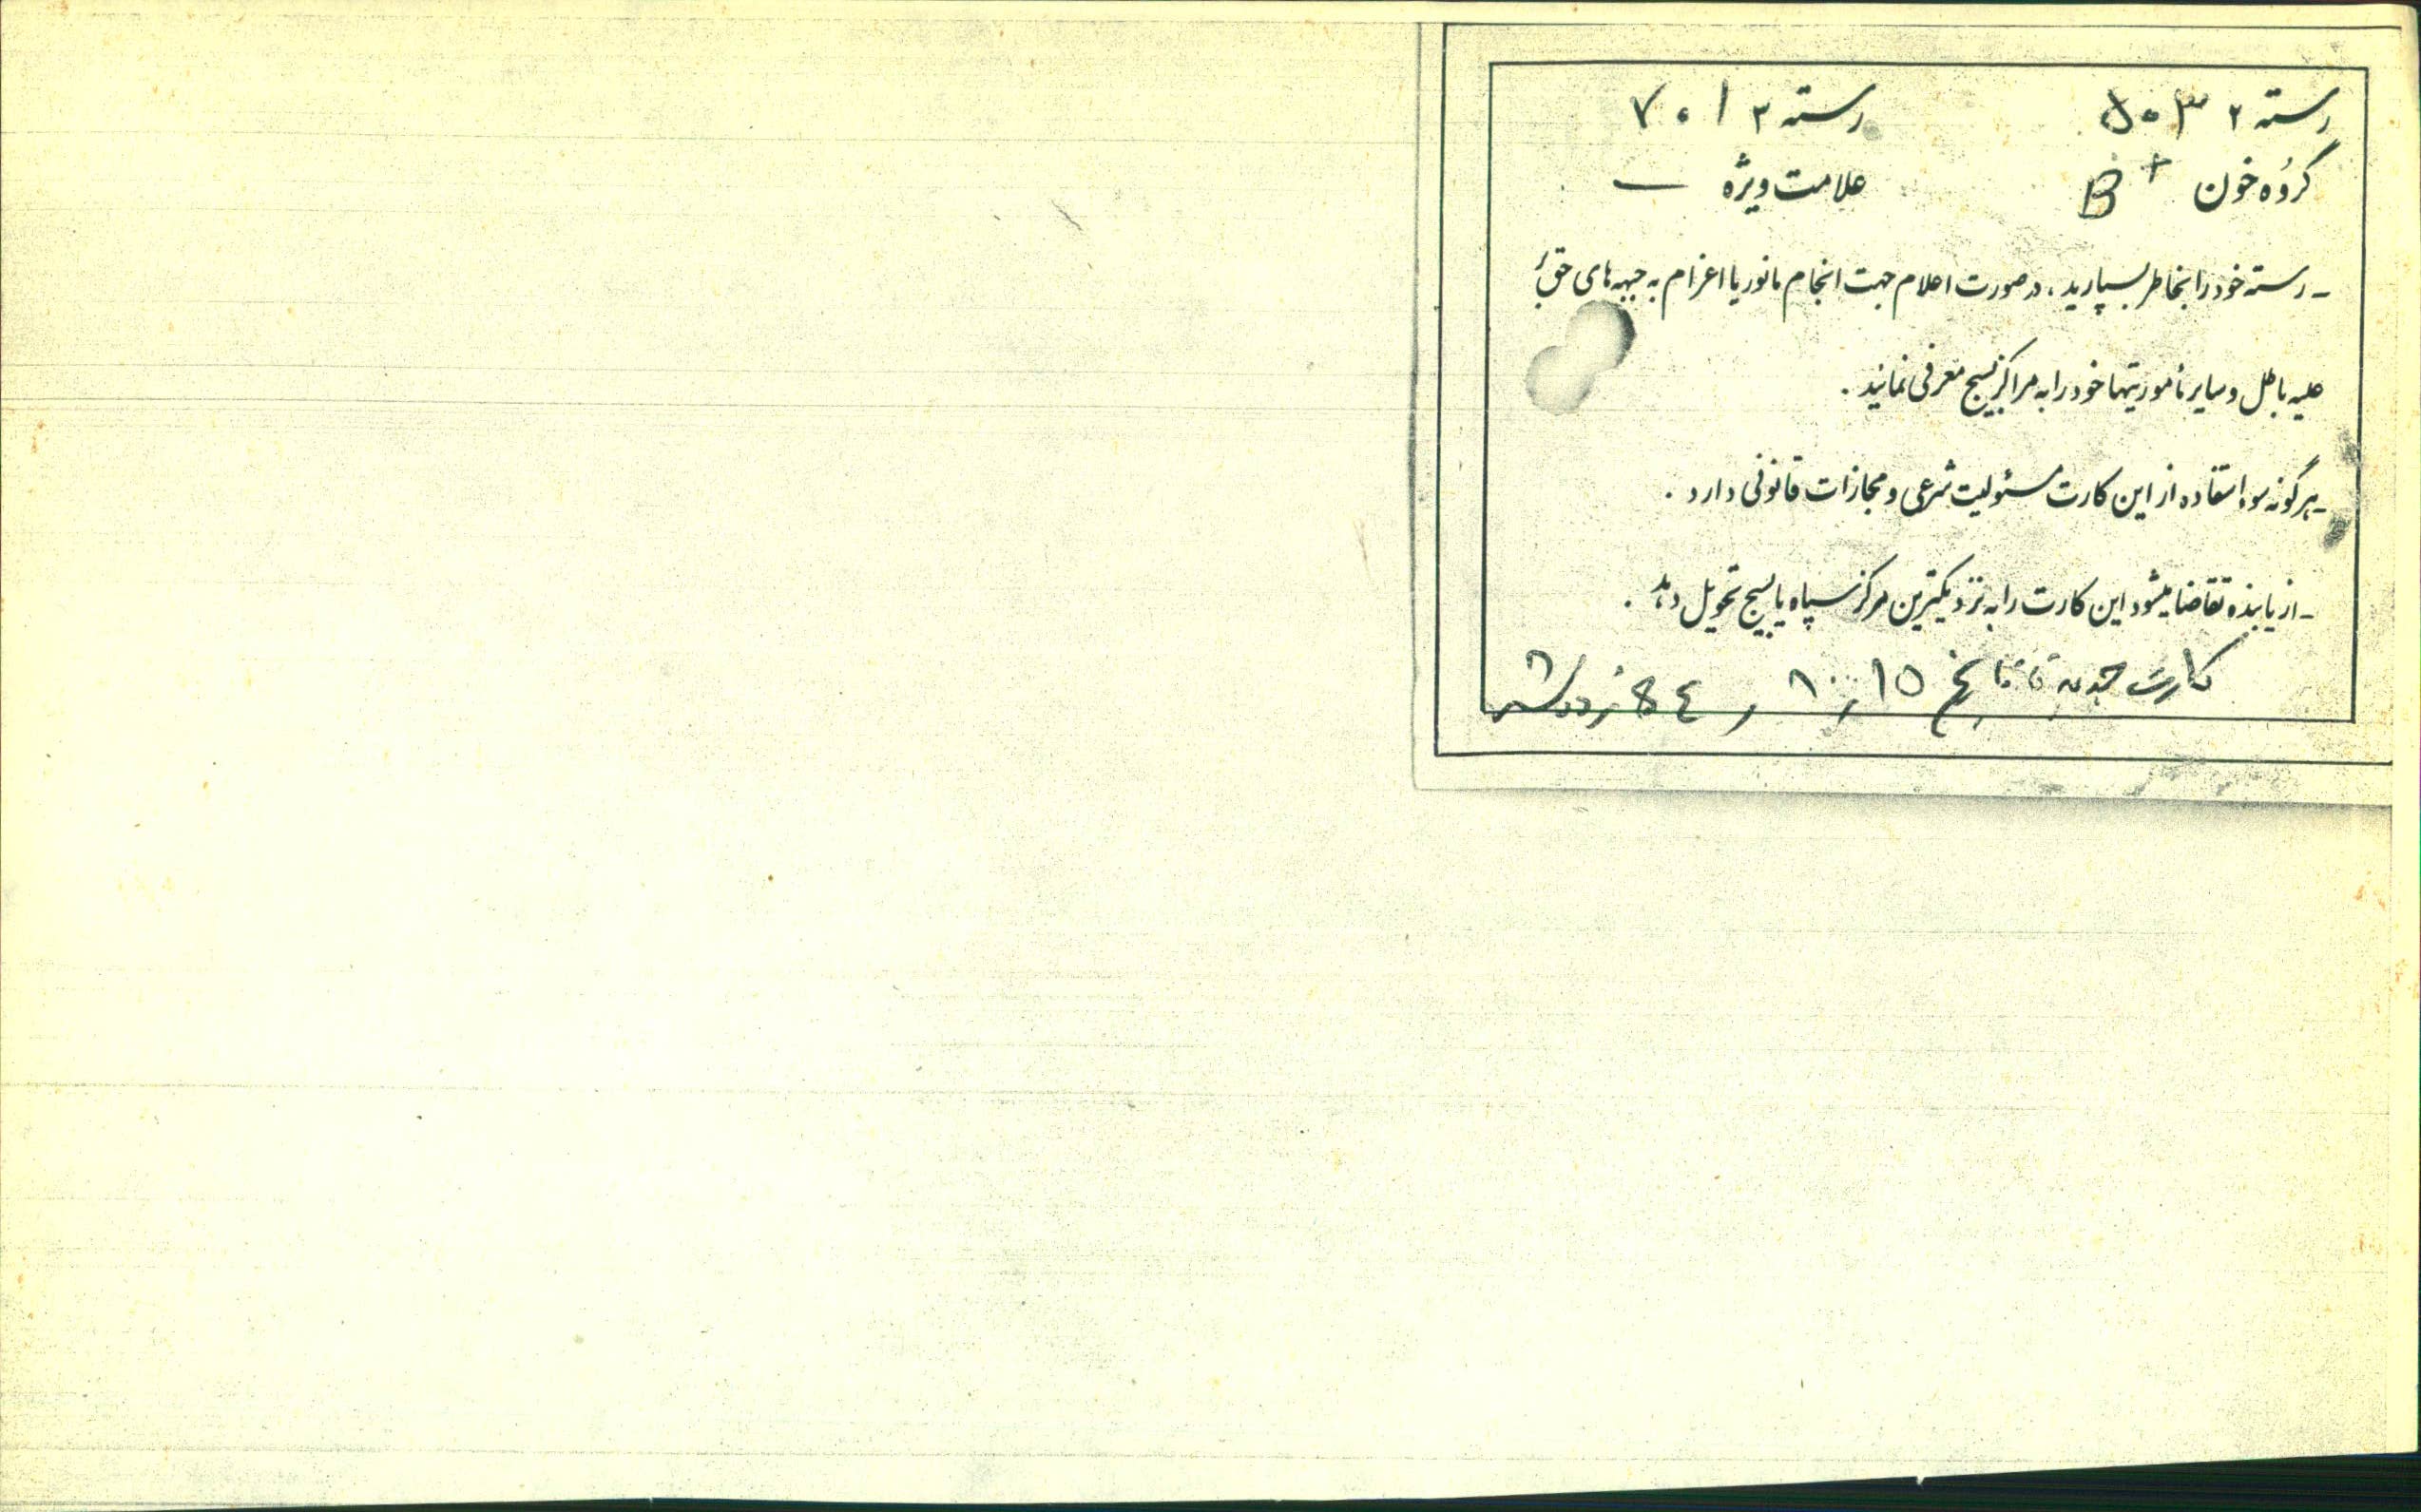 رسته ۲ ۵۰۳ رسته ۲ ۷۰۱
گروه خون B+ علامت ویژه —
- رسته خود را بخاطر بسپارید، در صورت اعلام جهت انجام مانور یا اعزام به جبهه های حق
علیه باطل و سایر مأموریتها خود را به مراکز بسیج معرفی نمائید.
- هرگونه سوء استفاده از این کارت مسئولیت شرعی و مجازات قانونی دارد.
- از یابنده تقاضا میشود این کارت را به نزدیکترین مرکز سپاه یا بسیج تحویل دهد.
کارت تا تاریخ ۱۵